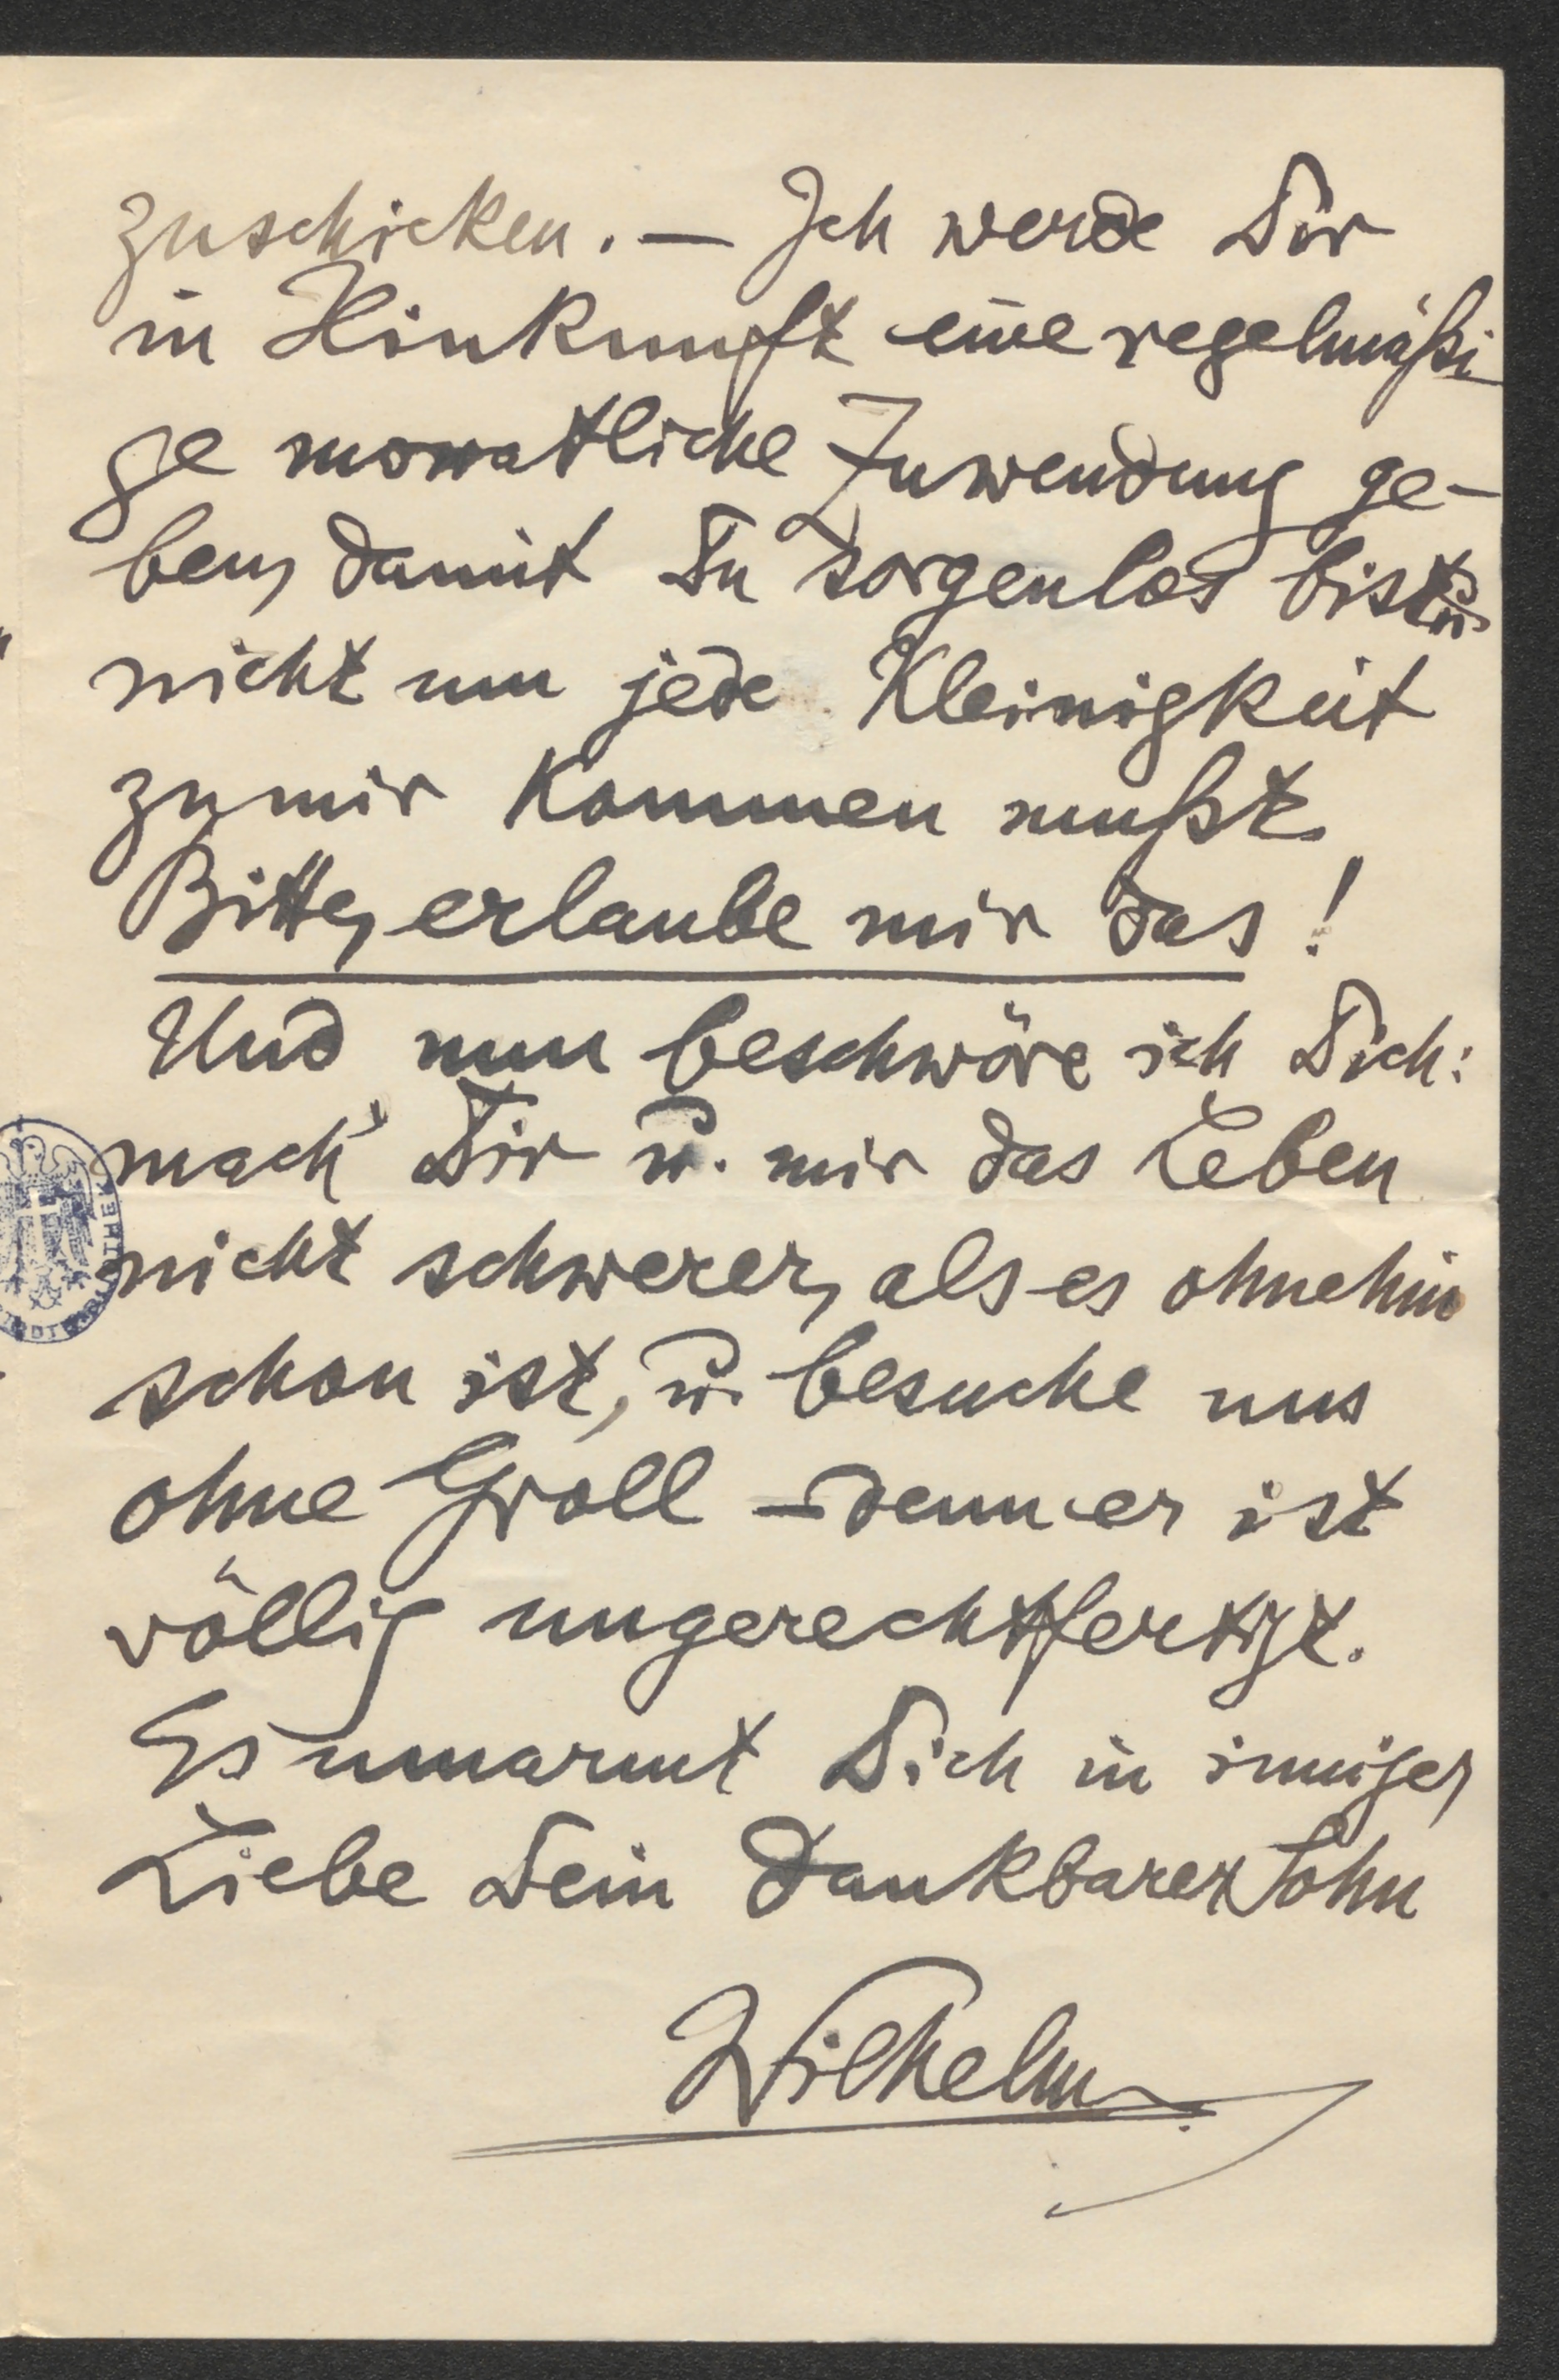 zuschicken. – Ich werde Dir
in Hinkunft eine regelmäßi-
ge monatliche Zuwendung ge-
ben, damit Du sorgenlos bist u.
nicht um jede Kleinigkeit
zu mir kommen mußt.
Bitte, erlaube mir das!
Und nun beschwöre ich Dich:
mach' Dir u. mir das Leben
nicht schwerer, als es ohnehin
schon ist, u. besuche uns
ohne Groll – denn er ist
völlig ungerechtfertigt.
Es umarmt Dich in inniger
Liebe Dein dankbarer Sohn
Wilhelm